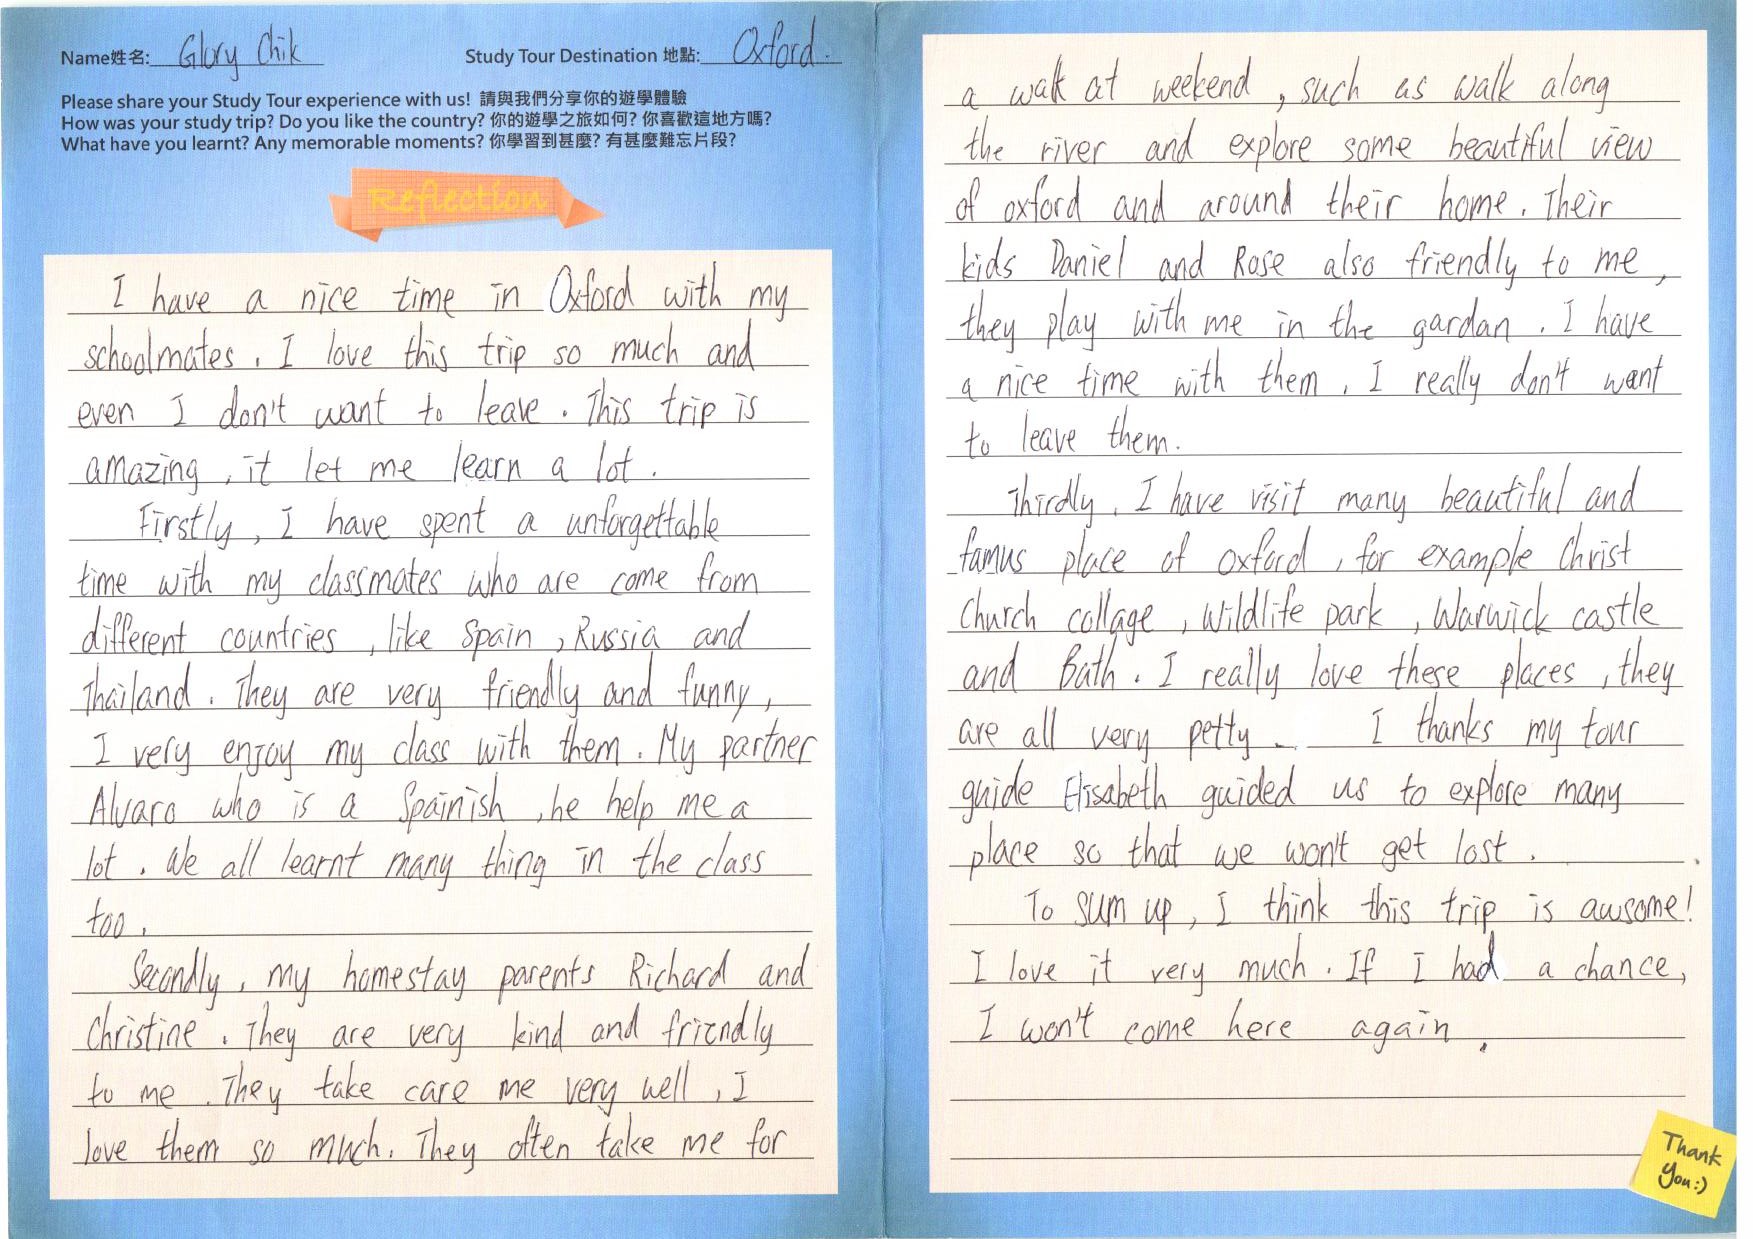 Name姓名: Glory Chik
Study Tour Destination 地點: Oxford.
Please share your Study Tour experience with us! 請與我們分享你的遊學體驗
How was your study trip? Do you like the country? 你的遊學之旅如何? 你喜歡這地方嗎?
What have you learnt? Any memorable moments? 你學習到甚麼? 有甚麼難忘片段?
Reflection
I have a nice time in Oxford with my
schoolmates. I love this trip so much and
even I don't want to leave. This trip is
amazing, it let me learn a lot.
Firstly, I have spent a unforgettable
time with my classmates who are come from
different countries, like Spain, Russia and
Thailand. They are very friendly and funny,
I very enjoy my class with them. My partner
Alvaro who is a Spainish, he help me a
lot. We all learnt many thing in the class
too.
Secondly, my homestay parents Richard and
Christine. They are very kind and friendly
to me. They take care me very well, I
love them so much. They often take me for
a walk at weekend, such as walk along
the river and explore some beautiful view
of oxford and around their home. Their
kids Daniel and Rose also friendly to me,
they play with me in the gardan. I have
a nice time with them. I really don't want
to leave them.
Thirdly, I have visit many beautiful and
famus place of oxford, for example Christ
Church collage, Wildlife park, Warwick castle
and Bath. I really love these places, they
are all very petty. I thanks my tour
guide Elisabeth guided us to explore many
place so that we won't get lost.
To sum up, I think this trip is awsome!
I love it very much. If I had a chance,
I won't come here again.
Thank
you:)